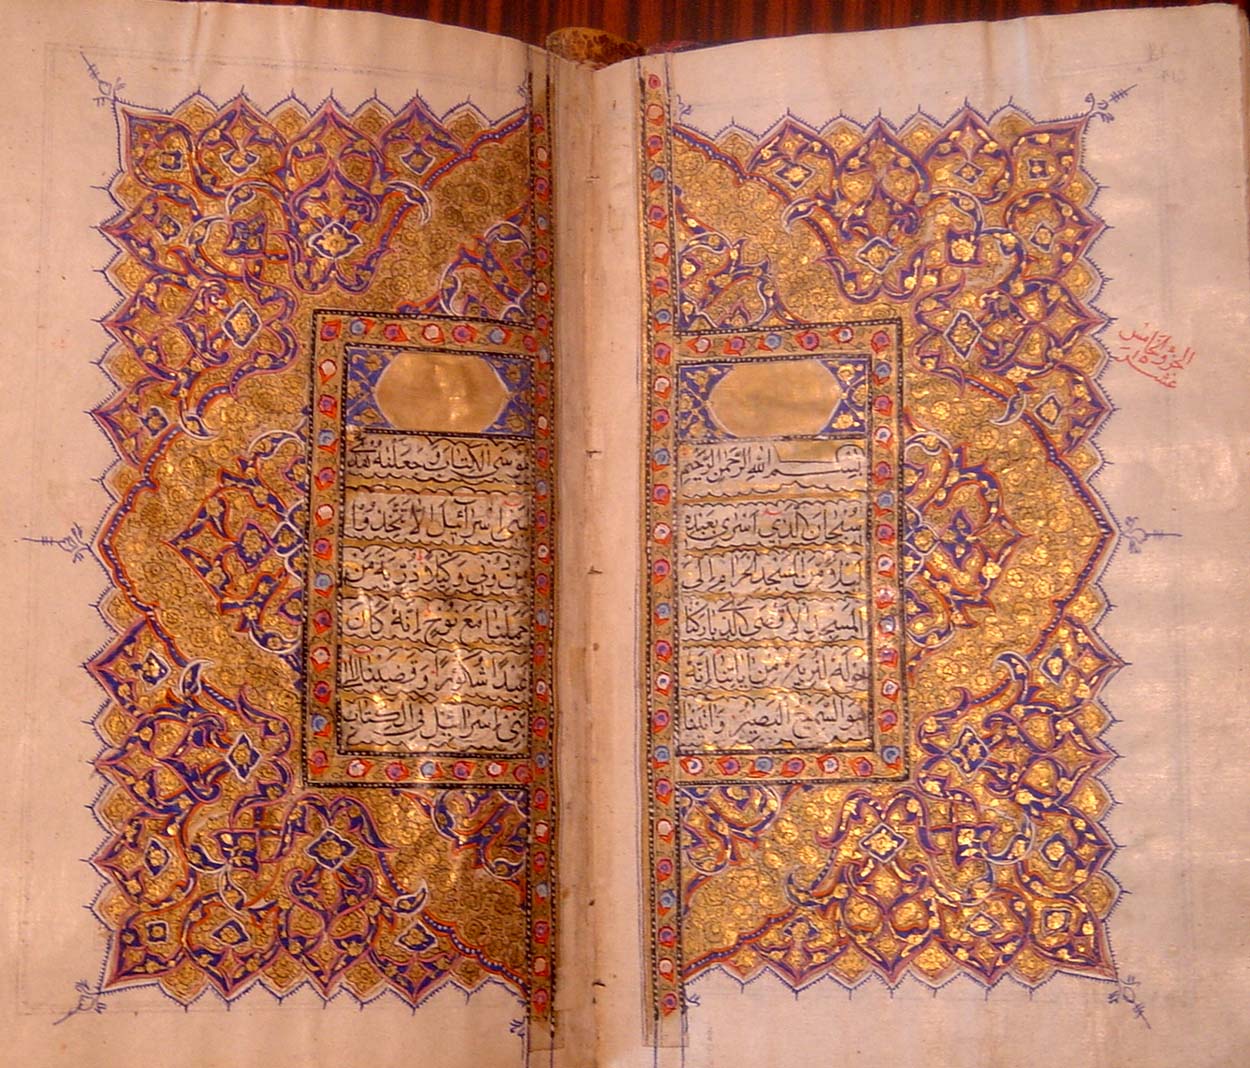 بِسْمِ اللهِ الرَّحْمنِ الرَّحِيمِ
سُبْحَانَ الَّذِي أَسْرَى بِعَبْدِهِ
لَيْلًا مِنَ الْمَسْجِدِ الْحَرَامِ إِلَى
الْمَسْجِدِ الْأَقْصَى الَّذِي بَارَكْنَا
حَوْلَهُ لِنُرِيَهُ مِنْ آيَاتِنَا إِنَّهُ
هُوَ السَّمِيعُ الْبَصِيرُ وَآتَيْنَا
مُوسَى الْكِتَابَ وَجَعَلْنَهُ هُدًى
لِبَنِي اسْرَآئِيلَ أَلَّا تَتَّخِذُوا
مِنْ دُونِي وَكِيلًا ذُرِّيَّةَ مَنْ
حَمَلْنَا مَعَ نُوحٍ إِنَّهُ كَانَ
عَبْدًا شَكُورًا وَقَضَيْنَا إِلَى
بَنِي اسْرَائِيلَ فِي الْكِتَابِ